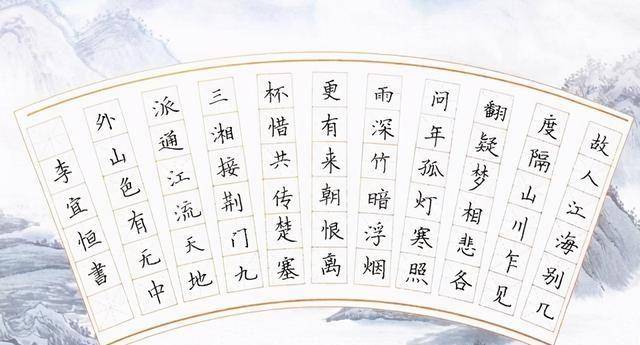 故人江海别几
度隔山川乍见
翻疑梦相悲各
问年孤灯寒照
雨深竹暗浮烟
更有来朝恨离
杯惜共传楚塞
三湘接荆门九
派通江流天地
外山色有无中
李宜恒書